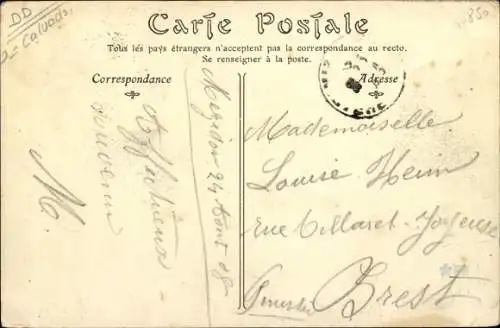 DD
Calvados
Carte Postale
Tous les pays étrangers n'acceptent pas la correspondance au recto.
Se renseigner à la poste.
Correspondance
Adresse
24 Août 08
Affectueux
souvenir
M.
Mademoiselle
Louise
Rue Villaret-Joyeuse
Brest
Finistère